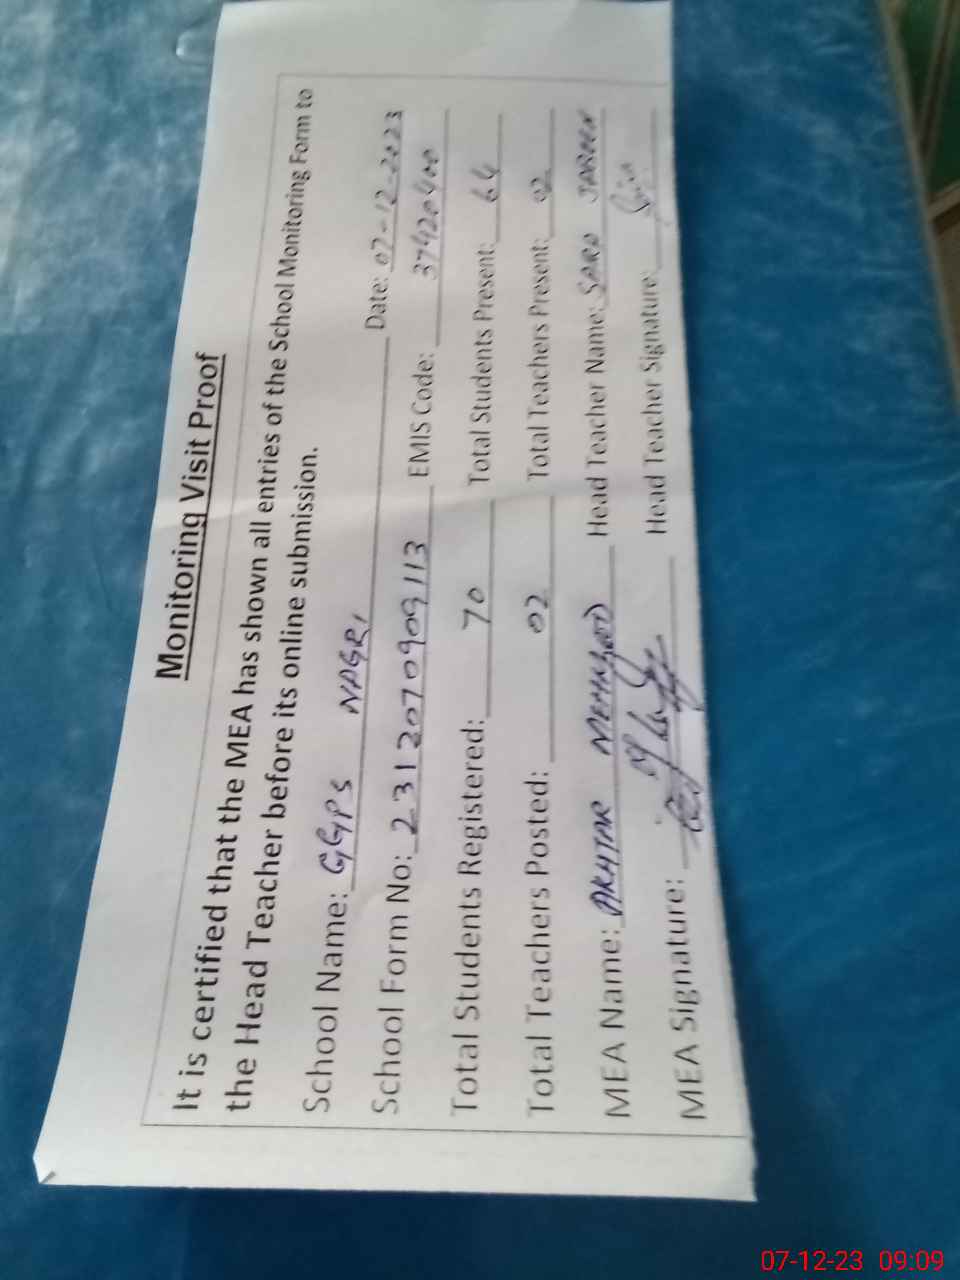 Monitoring Visit Proof
It is certified that the MEA has shown all entries of the School Monitoring Form to
the Head Teacher before its online submission.
School Name: GGPS NAGRI Date: 07-12-2023
School Form No: 2312070909113 EMIS Code: 37420400
Total Students Registered: 70 Total Students Present: 64
Total Teachers Posted: 02 Total Teachers Present: 02
MEA Name: AKHTAR MEHMOOD Head Teacher Name:
MEA Signature: Head Teacher Signature:
07-12-23 09:09